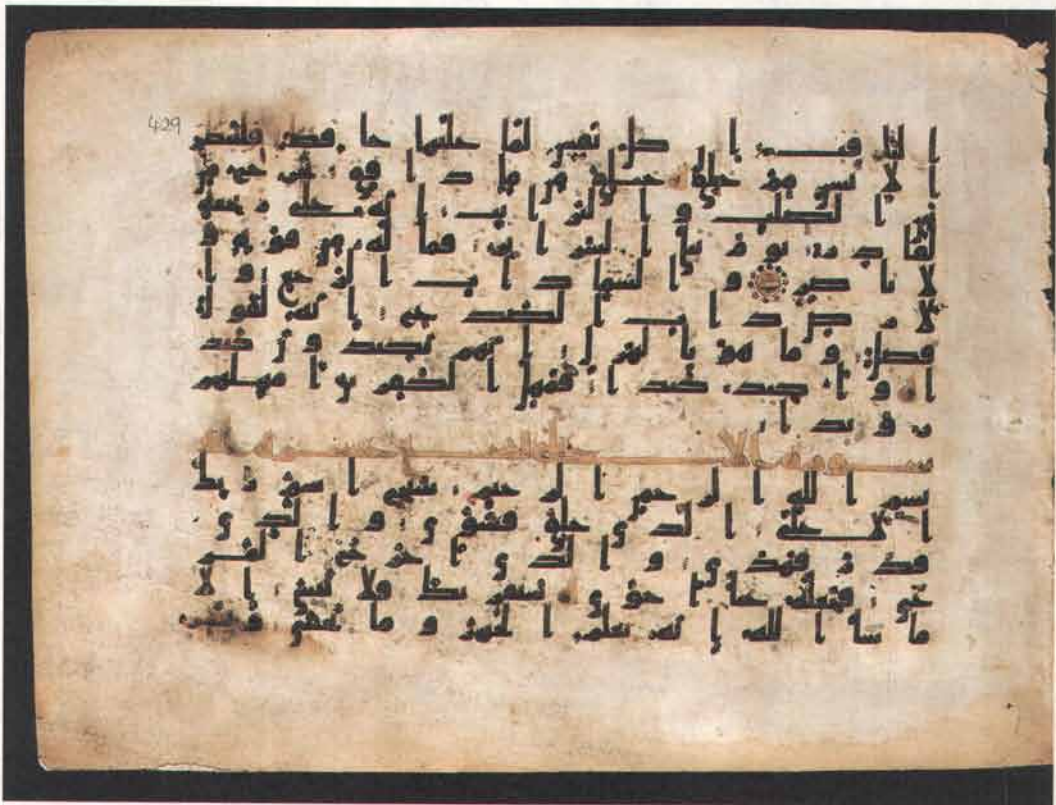 429
الثاقب ان كل نفس لما عليها حافظ فلينظر
الانسن مم خلق خلق من ما دافق يخرج من
بين الصلب والترائب انه على رجعه
لقادر يوم تبلى السرائر فما له من قوة و
لا ناصر والسما ذات الرجع وا
لارض ذات الصدع انه لقول
فصل وما هو بالهزل انهم يكيدون كيد
ا واكيد كيدا فمهل الكفرين امهلهم
رويدا
سورة الاعلى
بسم الله الرحمن الرحيم سبح اسم ربك
الاعلى الذي خلق فسوى والذي
قدر فهدى والذي اخرج المر
عى فجعله غثا احوى سنقرئك فلا تنسى الا
ما شا الله انه يعلم الجهر وما يخفى ونيسر